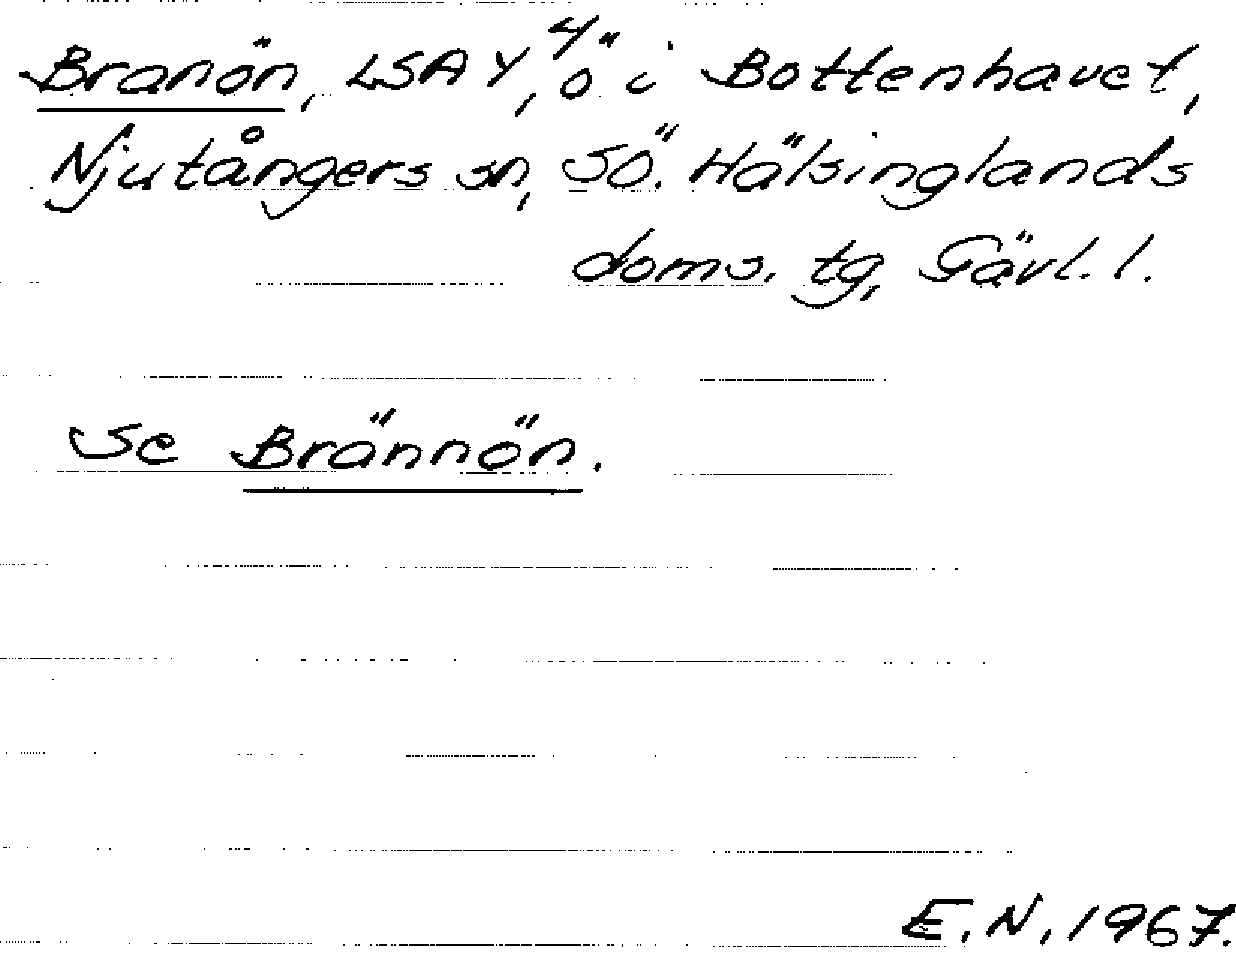 Branön, LSA Y⁴, ö i Bottenhavet,
Njutångers sn, SÖ. Hälsinglands
doms. tg, Gävl. l.
Se Brännön.
E.N. 1967.